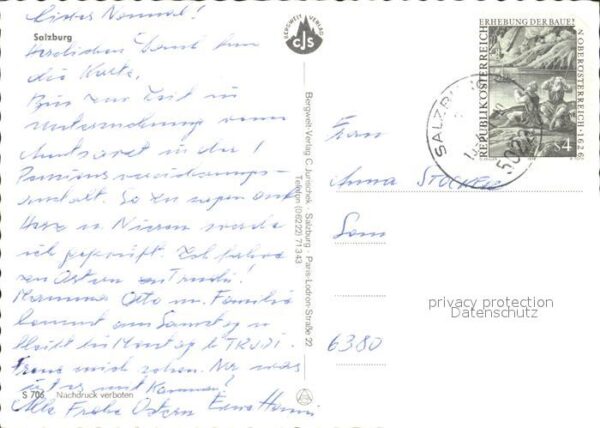 Liebes
Salzburg
Herzlichen
die Karte.
Bin zur Zeit in
Untersuchung vom
Amtsarzt in der
Pensionsversicherungs-
anstalt. So zu sagen auf
Herz u. Nieren werde
ich geprüft. Ich fahre
zu Ostern zu Trudi!
Mamma Otto u. Familie
kommt am Samstag u
bleibt bis Montag b. TRUDI.
Freue mich schon.
Alles Frohe Ostern
S 706 Nachdruck verboten
BERGWELT VERLAG
CJS
Bergwelt-Verlag C. Jurischek · Salzburg · Paris-Lodron-Straße 22
Telefon (06222) 71343
ERHEBUNG DER BAUERN OBERÖSTERREICH · 1626
REPUBLIK ÖSTERREICH
S 4
SALZBURG
5022
Frau
Anna STOCKER
privacy protection
Datenschutz
6380